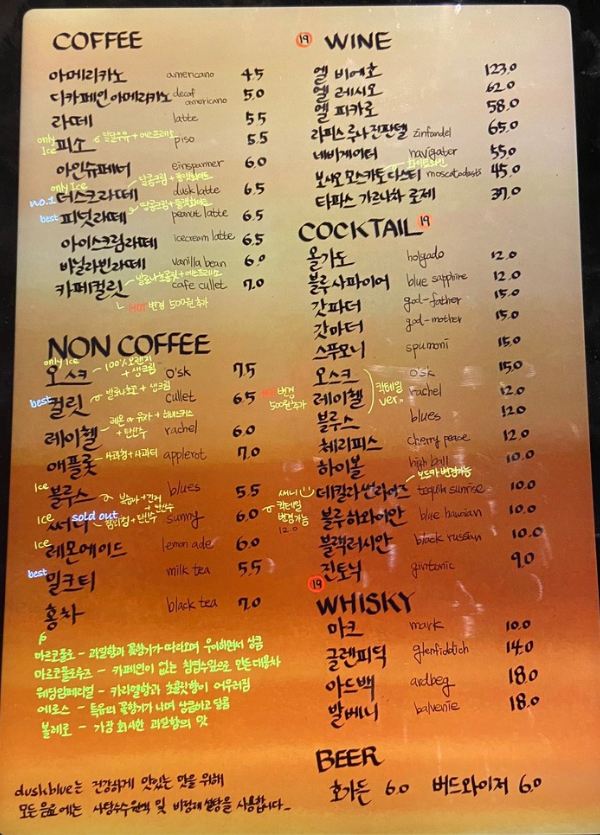 COFFEE
아메리카노 americano 4.5
디카페인 아메리카노 decaf americano 5.0
라떼 latte 5.5
only Ice 피소 piso 5.5
아인슈페너 einspanner 6.0
only Ice
no.1 더스크라떼 dusk latte 6.5
best 피넛라떼 peanut latte 6.5
아이스크림라떼 icecream latte 6.5
바닐라빈라떼 vanilla bean 6.0
카페컬릿 cafe cullet 7.0
HOT 변경 500원 추가
NON COFFEE
only Ice 100% 오렌지 + 생크림
오스크 o'sk 7.5
best 컬릿 cullet 6.5
HOT 변경 500원 추가
레이첼 rachel 6.0
애플롯 applerot 7.0
Ice 블루스 blues 5.5
Ice 써니 sold out sunny 6.0
써니 칵테일 변경가능 12.0
Ice 레몬에이드 lemon ade 6.0
best 밀크티 milk tea 5.5
홍차 black tea 7.0
마르코폴로 - 과일향과 꽃향기가 따라오며 우아하면서 상큼
마르코폴로루즈 - 카페인이 없는 침엽수잎으로 만든 대용차
웨딩임페리얼 - 카라멜향과 초콜릿향이 어우러짐
에로스 - 특유의 꽃향기가 나며 상큼하고 달콤
볼레로 - 가장 화사한 과일향의 맛
dusk blue는 건강하게 맛있는 맛을 위해
모든음료에는 사탕수수원액 및 비정제설탕을 사용합니다_
19 WINE
엘 비에호 123.0
엘 레시오 62.0
엘 피카로 58.0
라피스 루나 진판델 zinfandel 65.0
네비게이터 navigater 55.0
보시오 모스카토 다스티 moscatodasti 45.0
타피스 가르나차 로제 39.0
COCKTAIL 19
올가도 holgado 12.0
블루사파이어 blue sapphire 12.0
갓파더 god-father 15.0
갓마더 god-mother 15.0
스푸모니 spumoni 15.0
오스크 o'sk 15.0
레이첼 rachel 12.0
칵테일 ver.
블루스 blues 12.0
체리피스 cherry peace 12.0
하이볼 high ball 10.0
보드카 변경가능
데킬라 썬라이즈 tequila sunrise 10.0
블루하와이안 blue hawaiian 10.0
블랙러시안 black russian 10.0
진토닉 gintonic 9.0
19
WHISKY
마크 mark 10.0
글렌피딕 glenfiddich 14.0
아드백 ardbeg 18.0
발베니 balvenie 18.0
BEER
호가든 6.0 버드와이저 6.0